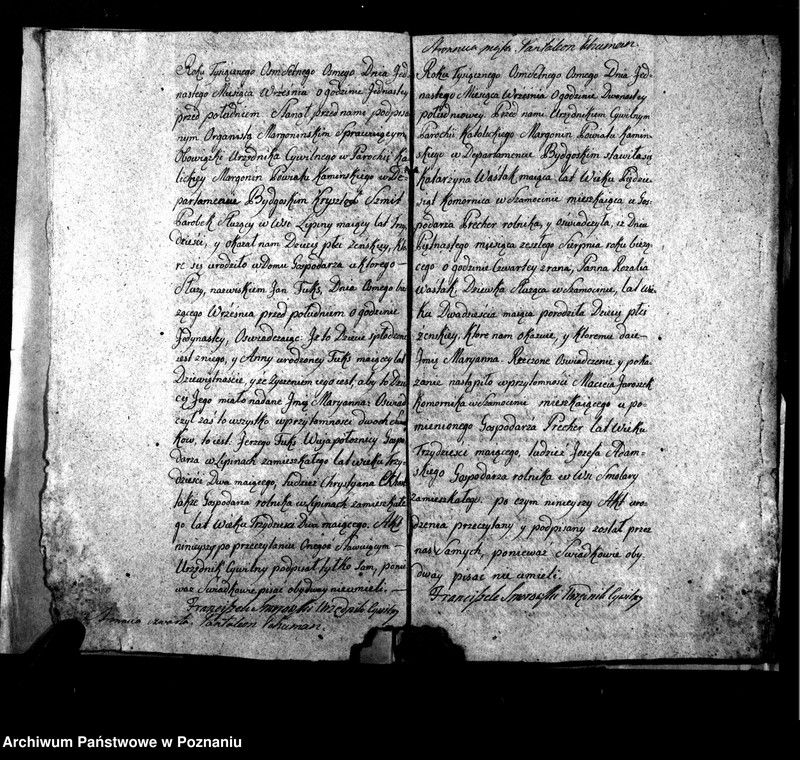 Roku Tysiącznego Osmsetnego Osmego Dnia Jed-
nastego Miesiąca Września o godzinie Jednastey
przed południem. Stanął przed nami podpisa-
nym Organistą Margoninskim Sprawuiącym
Obowiązki Urzędnika Cywilnego w Parochii Ka-
lickiey Margonin Powiatu Kaminskiego w De-
partamencie Bydgoskim Krysztof Szmit
Parobek Służący w Wsi Lipiny maiący lat Trzy-
dzieści, y okazał nam Dziecię płci żenskiey, któ-
re się urodziło w Domu Gospodarza u którego
Służy, nazwiskiem Jan Fuks, Dnia Osmego bie-
żącego Września przed południem o godzinie
Jedynastey, Oswiadczaiąc: Iż to Dziecie spłodzone
iest z niego, y Anny urodzoney Fuks maiącey lat
Dziewiętnaście, y że życzeniem iego iest, aby to Dzie-
cię Jego miało nadane Jmię Maryanna: Oswiad-
czył zaś to wszystko w przytomności dwoch świad-
kow, to iest. Jerzego Fuks Wuja położnicy Gospo-
darza w Lipinach zamieszkałego lat wieku Trzy-
dzieści Dwa maiącego, tudzież Chrystyana
także Gospodarza rolnika w Lipinach zamieszkałe-
go lat Wieku Trzydzieści Dwa maiącego. Akt
ninieyszy po przeczytaniu Onegoż Stawaiącym
Urzędnik Cywilny podpisał tylko Sam, ponie-
waż Swiadkowie pisać obydway nieumieli.
Franciszek Smorowski Urzędnik Cywilny
Stronnica czwarta, Pantaleon Schuman.
Stronnica piąta, Pantaleon Schuman.
Roku Tysiącznego Osmsetnego Osmego Dnia Jed-
nastego Miesiąca Września o godzinie Dwonastey
południowey. Przed nami Urzędnikiem Cywilnym
Parochii Katolickiego Margonin Powiatu Kamin-
skiego w Departamencie Bydgoskim stawiła się
Katarzyna Wastak maiąca lat Wieku Pięćdzie-
siąt komornica w Szamocinie mieszkaiąca u Gos-
podarza Precher rolnika, y oswiadczyła, iż Dnia
Piętnastego miesiąca zeszłego Sierpnia roku bieżą-
cego o godzinie Czwartey z rana, Panna Rozalia
Wastak Dziewka Służąca w Szamocinie, lat wie-
ku Dwadzieścia maiąca porodziła Dziecię płci
żenskiey, które nam okazuie, y któremu daie
Jmię Maryanna. Rzeczone Oswiadczenie y poka-
zanie nastąpiło w przytomności Macieia Jaroszek
komornika w Szamocinie mieszkaiącego u po-
mienionego Gospodarza Precher lat Wieku
Trzydzieści maiącego, tudzież Jozefa Adam-
skiego Gospodarza rolnika w Wsi Smolary
zamieszkałego. po czym ninieyszy Akt uro-
dzenia przeczytany y podpisany został przez
nas Samych, ponieważ Swiadkowie oby-
dway pisać nie umieli.
Franciszek Smorowski Urzędnik Cywilny
Archiwum Państwowe w Poznaniu